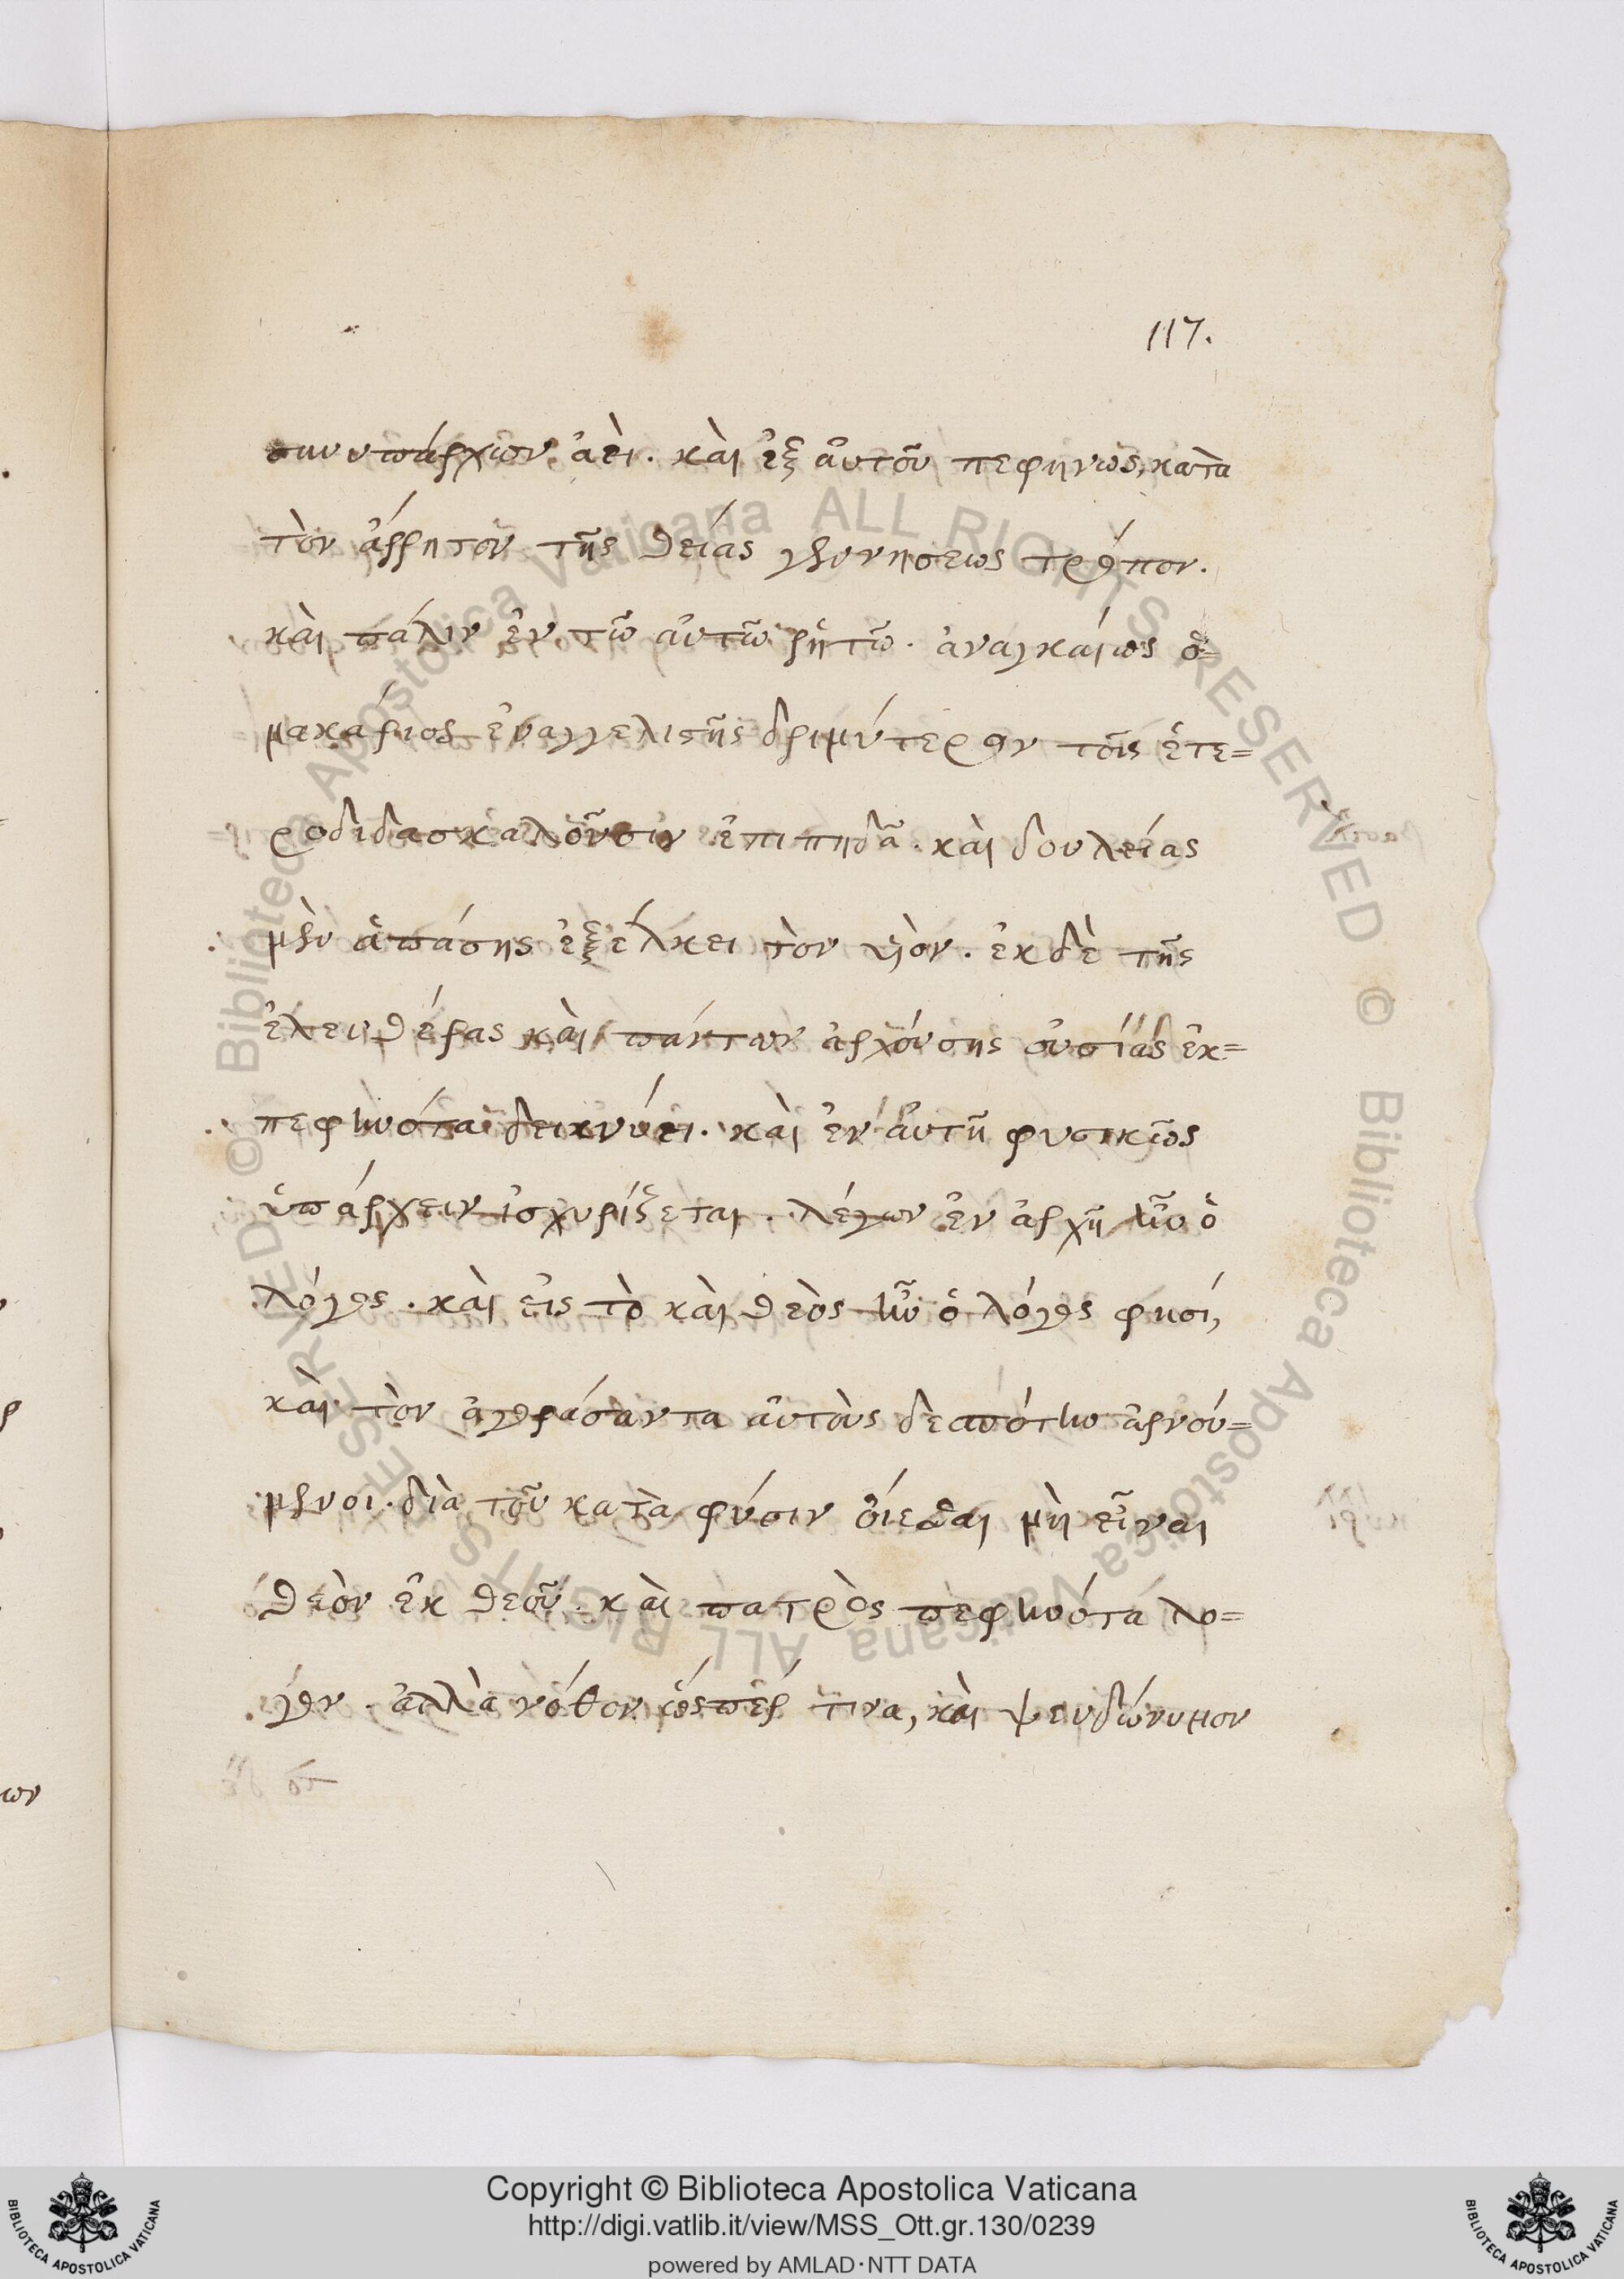 117.
συνυπάρχων ἀεὶ. καὶ ἐξ αὐτοῦ πεφηνὼς, κατὰ
τὸν ἄρρητον τῆς θείας γεννήσεως τρόπον.
καὶ πάλιν ἐν τῶ αὐτῶ ῥητῶ. ἀναγκαίως ὁ=
μακάριος εὐαγγελιστὴς δριμύτερον τοῖς ἑτε=
ροδιδασκαλοῦσιν ἐπιπηδᾶ. καὶ δουλείας
μὲν ἁπάσης ἐξέλκει τὸν υἱὸν. ἐκ δὲ τῆς
ἐλευθέρας καὶ πάντων ἀρχούσης οὐσίας ἐκ=
πεφηνότα δεικνύει. καὶ ἐν αὐτῆ φυσικῶς
ὑπάρχειν ἰσχυρίζεται. λέγων ἐν ἀρχῆ ἦν ὁ
λόγος. καὶ εἰς τὸ καὶ θεὸς ἦν ὁ λόγος φησί,
καὶ τὸν ἀγοράσαντα αὐτοὺς δεσπότην ἀρνού=
μενοι. διὰ τοῦ κατὰ φύσιν οἴεσθαι μὴ εἶναι
θεὸν ἐκ θεοῦ. καὶ πατρὸς πεφηνότα λό=
γον. ἀλλὰ νόθον ὥσπερ τινα, καὶ ψευδώνυμον
Copyright © Biblioteca Apostolica Vaticana
http://digi.vatlib.it/view/MSS_Ott.gr.130/0239
powered by AMLAD·NTT DATA
BIBLIOTECA APOSTOLICA VATICANA
BIBLIOTECA APOSTOLICA VATICANA
© Biblioteca Apostolica Vaticana ALL RIGHTS RESERVED
© Biblioteca Apostolica Vaticana ALL RIGHTS RESERVED